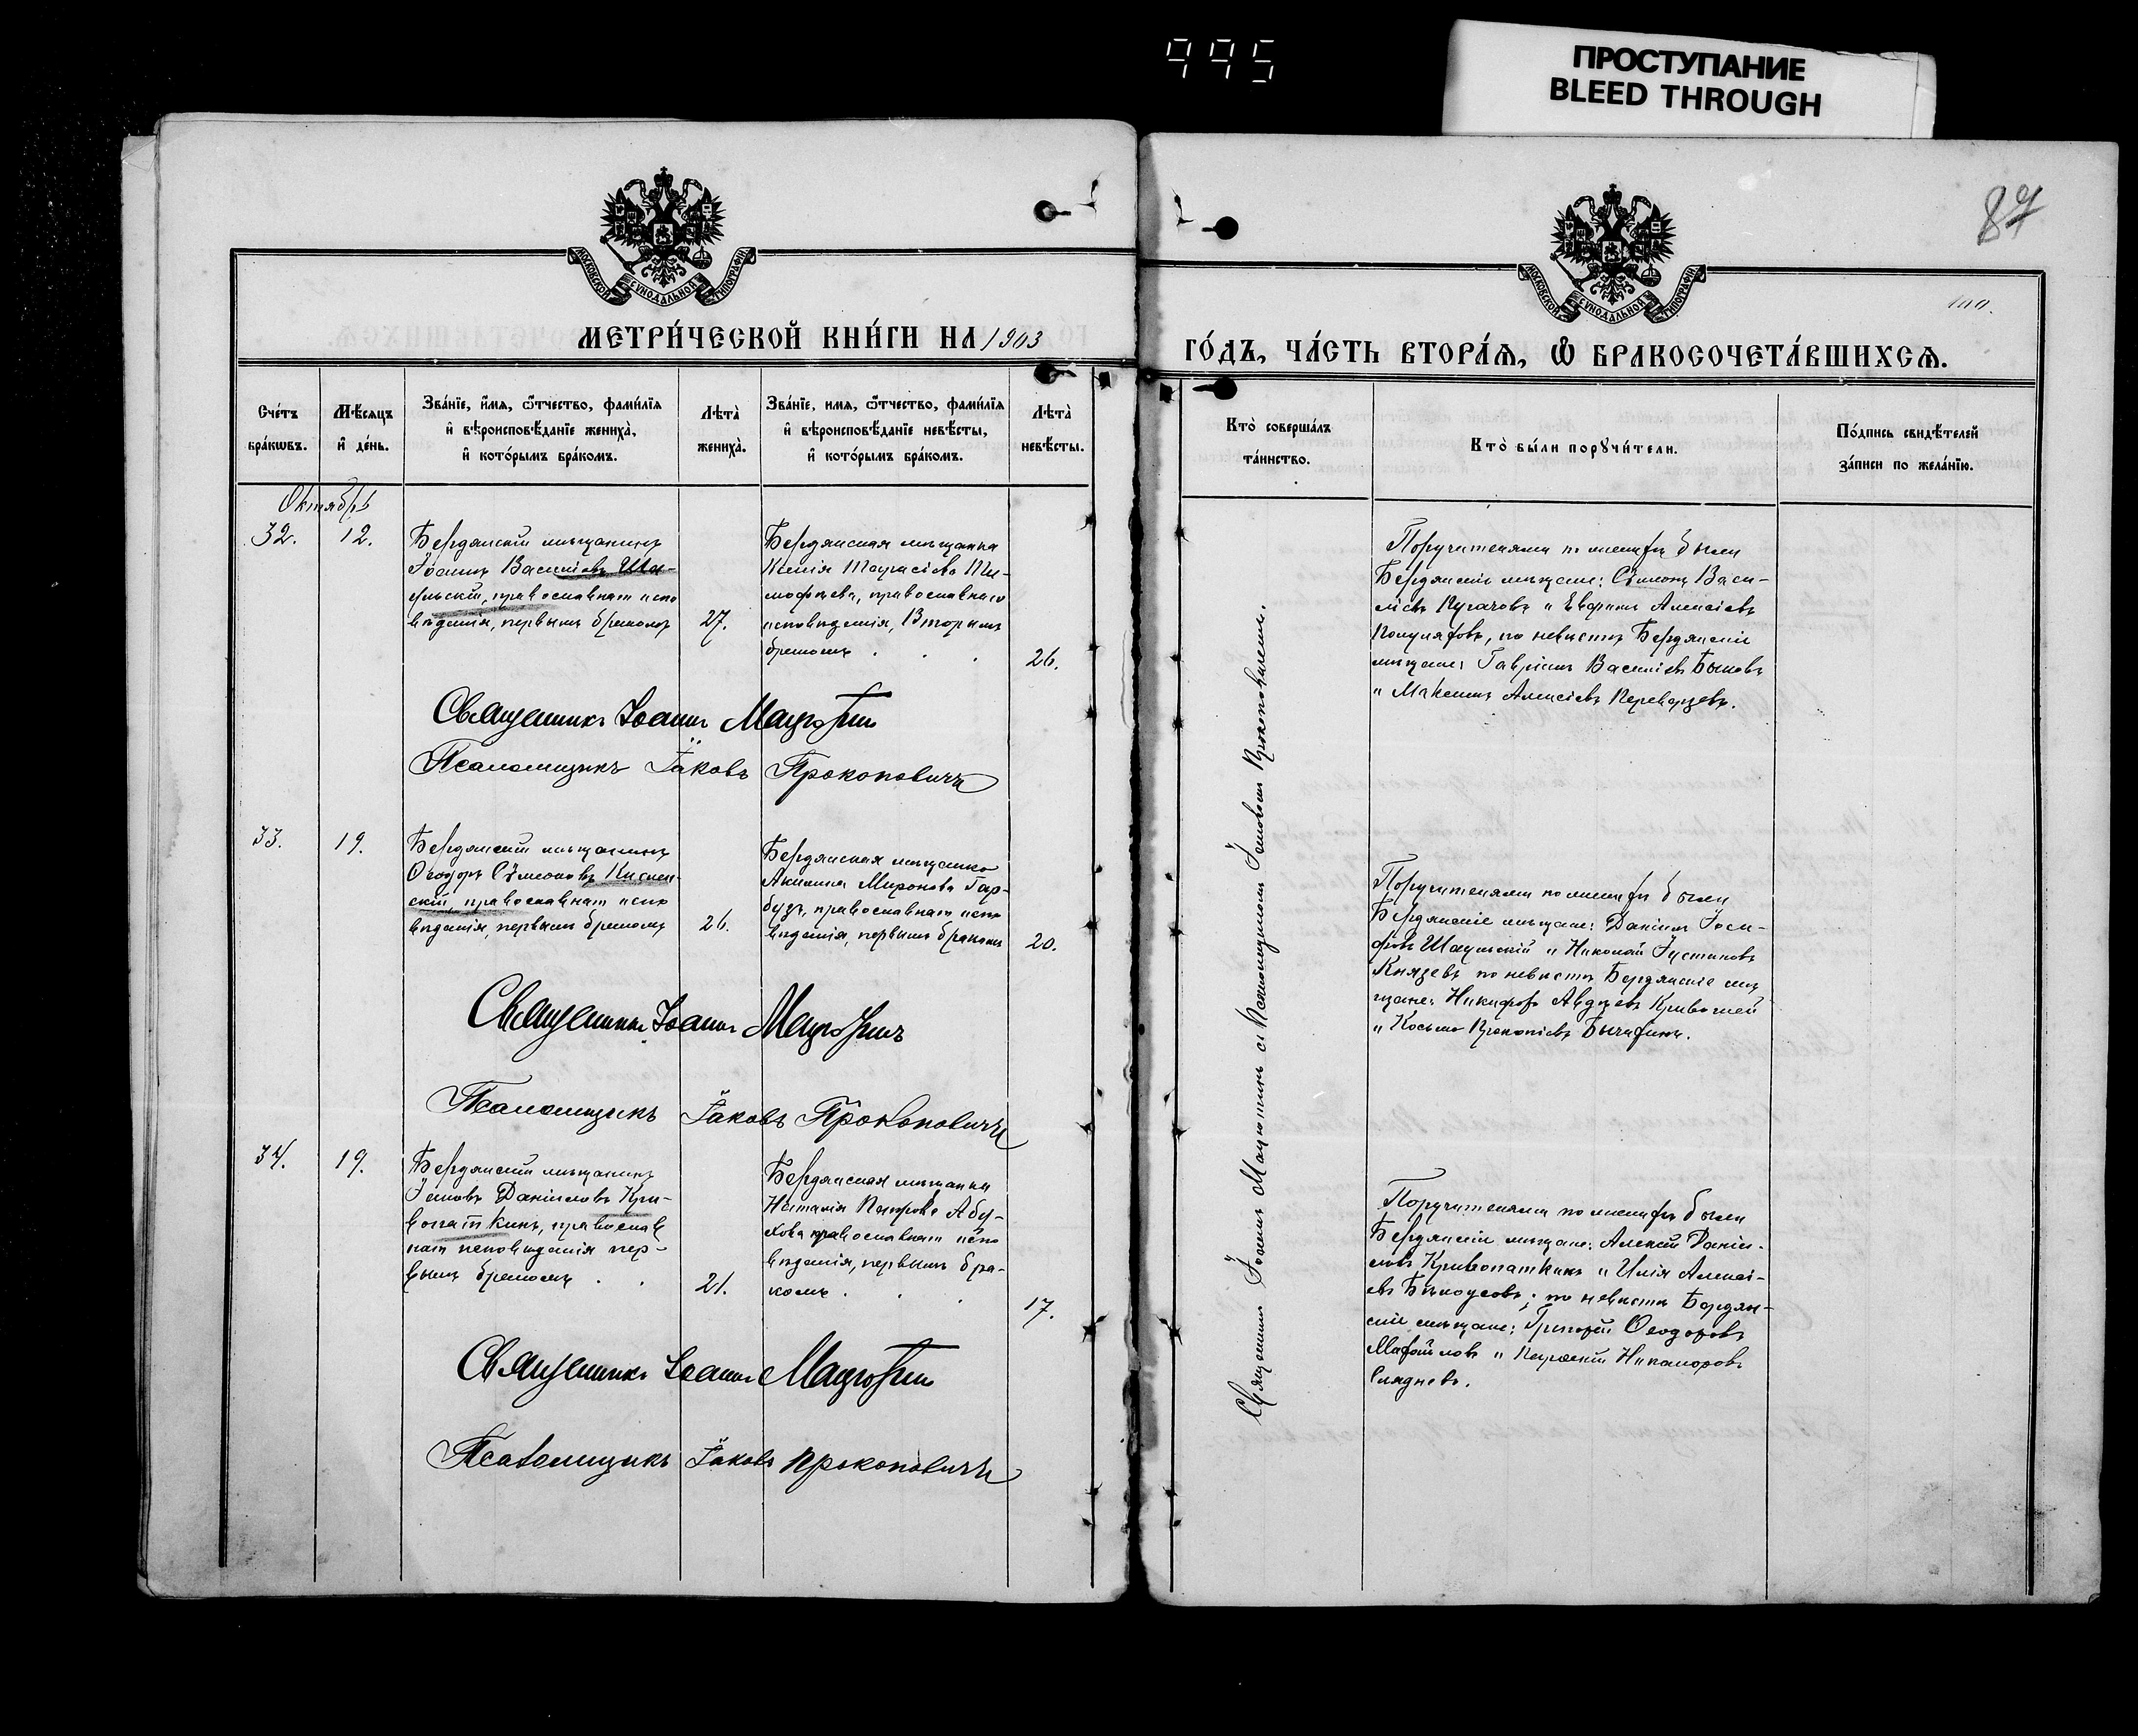 995
ПРОСТУПАНИЕ
BLEED THROUGH
87
МОСКОВСКОЙ СѴНОДАЛЬНОЙ ТИПОГРАФІИ
МОСКОВСКОЙ СѴНОДАЛЬНОЙ ТИПОГРАФІИ
МЕТРИ́ЧЕСКОЙ КНИ́ГИ НА 1903
ГО́ДЪ, ЧА́СТЬ ВТОРА́Ѧ, Ѽ БРАКОСОЧЕТА́ВШИХСѦ.
Сче́тъ
бра́кωвъ.
Мѣ́сяцъ
и҆ де́нь.
Зва́нїе, и҆́мя, ѻ҆́тчество, фами́лїя
и҆ вѣроисповѣ́данїе жениха̀,
и҆ кото́рымъ бра́комъ.
Лѣта̀
жениха̀.
Зва́нїе, имя, ѻ҆́тчество, фами́лїя
и҆ вѣроисповѣ́данїе невѣ́сты,
и҆ кото́рымъ бра́комъ.
Лѣта̀
невѣ́сты.
Кто̀ соверша́лъ
та́инство.
Кто̀ бы́ли порꙋчи́тели.
По́дпись свидѣ́телей
за́писи по жела́нїю.
Октябрь
32.
12.
Бердянскій мѣщанинъ
Іоаннъ Василіевъ Ша-
ульскій, православнаго испо
вѣданія, первымъ бракомъ
27.
Бердянская мѣщанка
Тарасіева Ти-
мофѣева, православнаго
исповѣданія, Вторымъ
бракомъ . . .
26.
Поручителями по женихѣ были
Бердянскіе мѣщане: Сѵмеонъ Васи-
ліевъ Пугачовъ и Алексіевъ
по невѣстѣ Бердянскіе
мѣщане: Гавріилъ Василіевъ Быковъ
и Максимъ Алексіевъ
Священникъ Іоаннъ
Псаломщикъ Іаковъ Прокоповичъ
33.
19.
Бердянскій мѣщанинъ
Ѳеодоръ Сѵмеоновъ Кислин-
скій, православнаго испо
вѣданія, первымъ бракомъ
26.
Бердянская мѣщанка
Акилина Миронова Гар-
бузъ, православнаго испо
вѣданія, первымъ бракомъ
20.
Поручителями по женихѣ были
Бердянскіе мѣщане: Даніилъ Іоси-
фовъ Шаульскій и Николай Іустиновъ
Князевъ по невѣстѣ Бердянскіе мѣ
щане: Никифоръ Авдѣевъ Кривошей
и Косьма Прокопіевъ
Священникъ Іоаннъ
Псаломщикъ Іаковъ Прокоповичъ
34.
19.
Бердянскій мѣщанинъ
Іаковъ Даніиловъ Кри-
вопаткинъ, православ
наго исповѣданія пер-
вымъ бракомъ . .
21.
Бердянская мѣщанка
Наталія Петрова Абу-
хова православнаго испо
вѣданія, первымъ бра-
комъ . . .
17.
Поручителями по женихѣ были
Бердянскіе мѣщане: Алексій Даніи-
ловъ Кривопаткинъ и Илія Алексі-
евъ Бѣлоусовъ; по невѣстѣ Бердян-
скіе мѣщане: Григорій Ѳеодоровъ
и Никаноровъ
Священникъ Іоаннъ
Псаломщикъ Іаковъ Прокоповичъ
Священникъ Іоаннъ съ Псаломщикомъ Іаковомъ Прокоповичемъ.